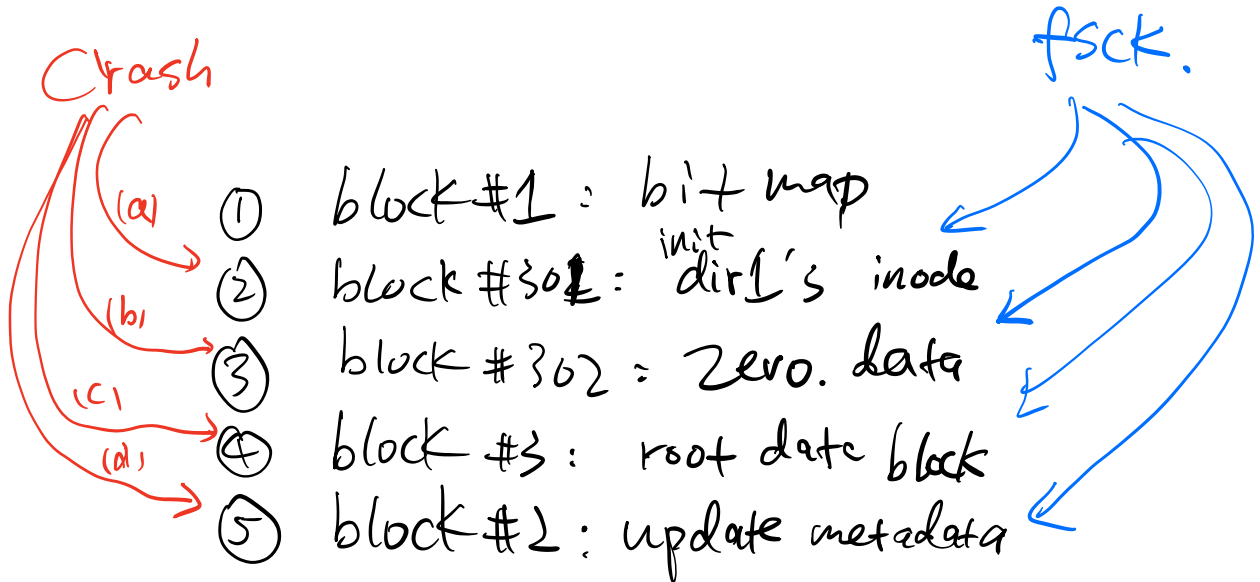 Crash
fsck.
(a)
① block #1 : bit map
init
② block #301 : dir1's inode
(b)
③ block #302 : zero. data
(c)
④ block #3 : root data block
(d)
⑤ block #2 : update metadata